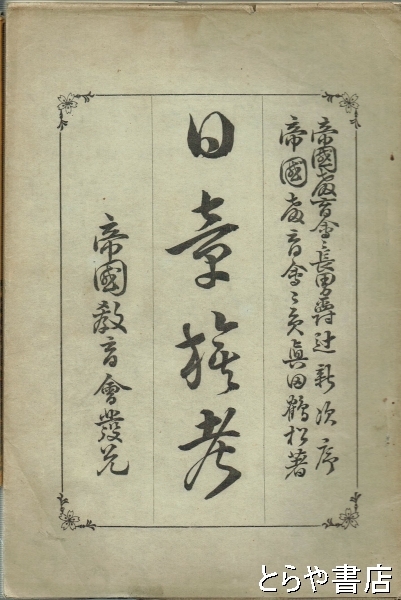 帝國教育會長男爵辻新次序
帝國教育會々員眞田鶴松著
日章旗考
帝國教育會發兌
とらや書店